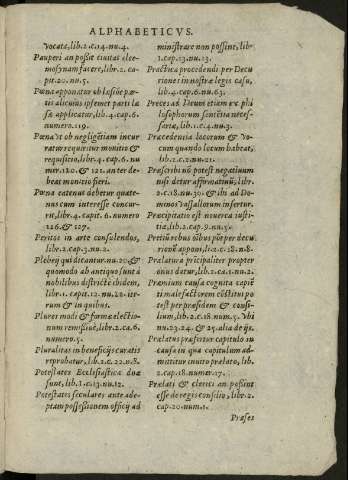 ALPHABETICVS.
vocata, lib. 2. c. 14. nu. 4.
Pauperi an poßit ciuitas elee-
mosynam facere, libr. 2. ca-
pit. 20. nu. 5.
Pœna apponatur ob læsionẽ par-
tis alicuius ipsemet parti læ
sæ applicatur, lib. 4. cap. 6.
numero 119.
Pœnæ vt ob negligẽtiam incur
ratur requiritur monitio &
requisitio, libr. 4. cap. 6. nu
mer. 120. & 121. an ter de-
beat monitio fieri.
Pœna catenus debetur quate-
nus cum interesse concur-
rit, libr. 4. capit. 6. numero
126. & 127.
Peritos in arte consulendos,
lib. 2. cap. 23. nu. 2.
Plebeij qui dicantur. nu. 20. &
quomodo ab antiquo sunt à
nobilibus districtè ibidem,
libr. 1. capit. 12. nu. 22. ite-
rum & in quibus.
Plures modi & formæ electio-
num remißiuè, libr. 2. ca. 6.
numero. 5.
Pluralitas in beneficijs curatis
reprobatur, lib. 2. c. 22. n. 8.
Potestates Ecclesiasticæ duæ
sunt, lib. 1. c. 13. nu. 12.
Potestates seculares ante ade-
ptam possessionem officij ad
ministrare non possint, lib.
1. cap. 13. nu. 13.
Practica procedendi per Decu
riones in nostræ legis casu,
lib. 4. cap. 6. nu. 63.
Preces ad Deum etiam ex phi
losophorum sentẽtia neces-
sariæ, lib. 1. c. 4. nu. 3.
Præcedentia locorum & vo-
cum quando locum habeat,
lib. 2. c. 2. nu. 21.
Præscribi nõ potest negatiuum
nisi detur affirmatiuũ, libr.
2. c. 18. nu. 30. & ibi ad Do-
minos Vassallorum infertur.
Præcipitatio est nouerca iusti-
tiæ, lib. 2. cap. 9. nu. 3.
Pretiũ rebus oĩbus põt per decu
rionẽ apponi, li. 2. c. 18. n. 8.
Prælatura prĩcipaliter propter
onus datur, lib. 2. ca. 1. nu. 2.
Præmium causa cognita capiẽ
ti malefactorem cõstitui po
test per præsidem & consi-
lium, lib. 2. c. 18. num. 5. vbi
nu. 23. 24. & 25. alia de ijs.
Prælatus præfertur capitulo in
causa in qua capitulum ad-
mittitur inuito prælato, lib.
2. cap. 18. numer. 17.
Prælati & clerici an poßint
esse de regis consilio, libr. 2.
cap. 20. num. 1.
Præses